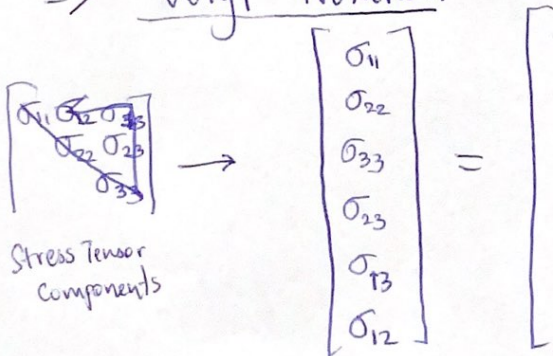 ⇒ Voigt Notation
σ11 σ12 σ13
σ22 σ23
σ33
→
σ11
σ22
σ33
σ23
σ13
σ12
=
Stress Tensor
Components